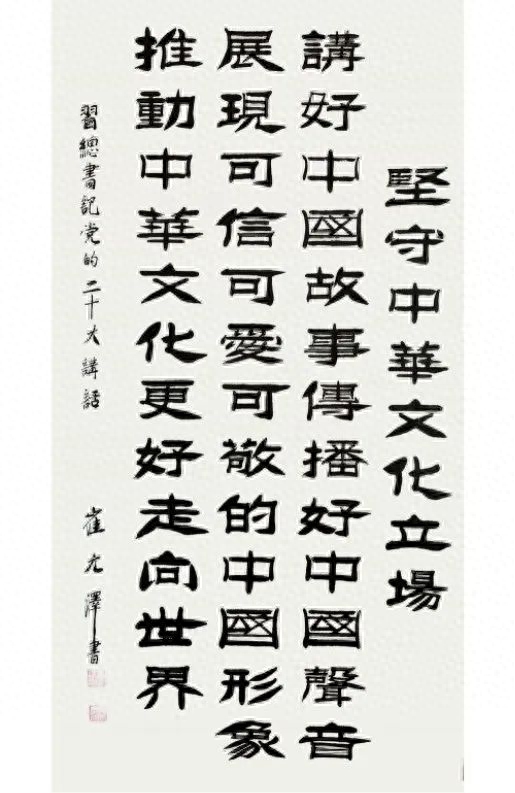 堅守中華文化立場
講好中國故事傳播好中國聲音
展現可信可愛可敬的中國形象
推動中華文化更好走向世界
習總書記党的二十大講話
崔九澤書